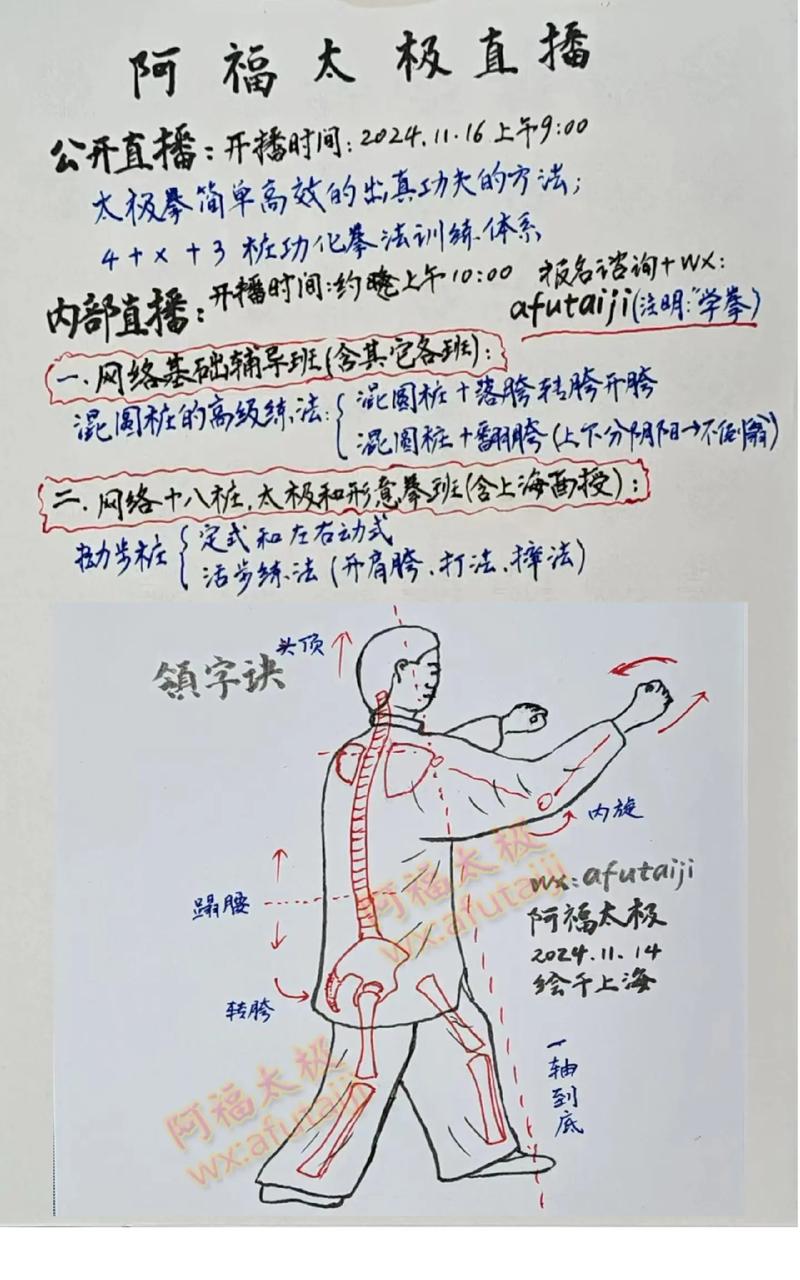 阿福太极直播
公开直播：开播时间：2024.11.16上午9:00
太极拳简单高效的出真功夫的方法；
4+x+3桩功化拳法训练体系
内部直播：开播时间：约晚上午10:00
报名咨询+wx：
afutaiji(注明："学拳)
一.网络基础辅导班(含其它各班)：
混圆桩的高级练法：
混圆桩+落胯转胯开胯
混圆桩+翻胯(上下分阴阳→不倒翁)
二.网络十八桩.太极和形意拳班(含上海面授)：
拗步桩
定式和左右动式
活步练法(开肩胯、打法、摔法)
领字诀
头顶
内旋
蹋腰
转胯
wx:afutaiji
阿福太极
2024.11.14
绘于上海
一轴到底
阿福太极
wx:afutaiji
阿福太极
wx:afutaiji